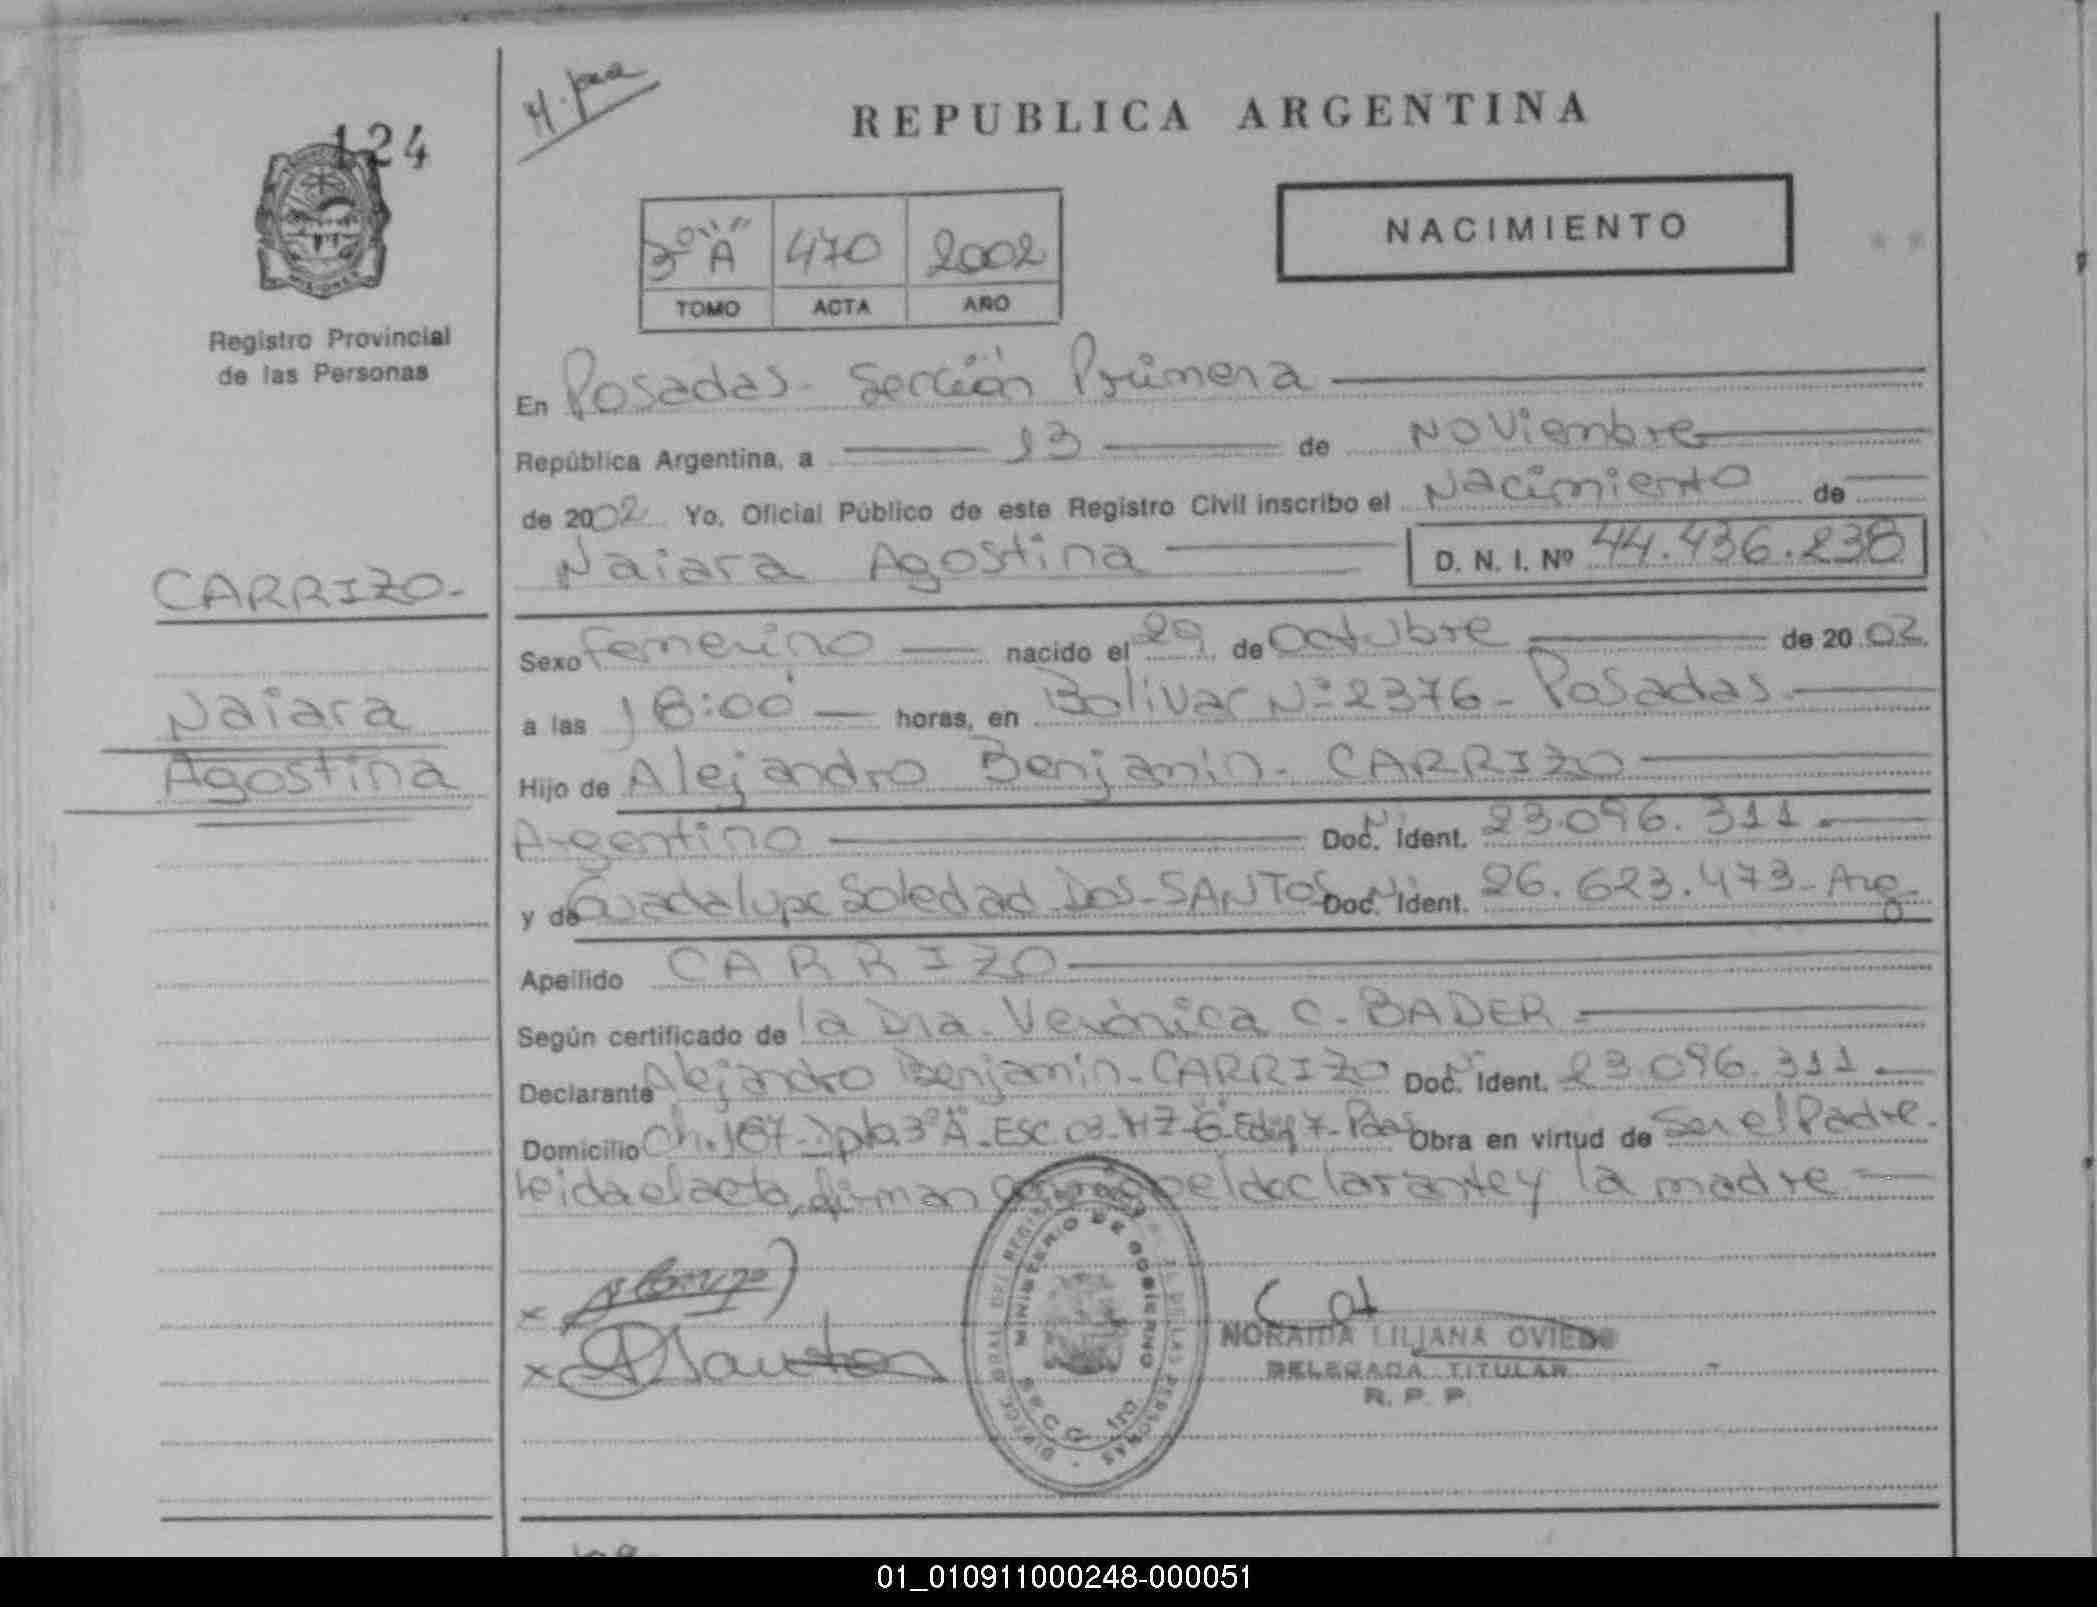 124
REPUBLICA ARGENTINA
NACIMIENTO
3º "A" 470 2002
TOMO ACTA AÑO
Registro Provincial
de las Personas
En Posadas - Sección Primera
República Argentina, a 13 de Noviembre
de 2002 Yo, Oficial Público de este Registro Civil inscribo el Nacimiento de
Naiara Agostina D. N. I. Nº 44.436.238
CARRIZO-
Naiara
Agostina
Sexo femenino nacido el 29 de Octubre de 2002.
a las 18:00 horas, en Bolivar Nº 2376 - Posadas
Hijo de Alejandro Benjamin - CARRIZO
Argentino Doc. Ident. 23.096.311
y de Guadalupe Soledad Dos-SANTOS Doc. Ident. 26.623.473 - Arg.
Apellido CARRIZO
Según certificado de la Dra. Verónica C. BADER
Declarante Alejandro Benjamin - CARRIZO Doc. Ident. 23.096.311
Domicilio Ch. 187 - Dpto. 3º "A" - Esc. 03 - MZ - 6 - Edif 7 - Obra en virtud de Ser el Padre.
leida el acta, firman el declarante y la madre
MINISTERIO DE GOBIERNO
Secc. 1ra.
NORAIDA LILIANA OVIEDO
DELEGADA TITULAR
R. P. P.
01_010911000248-000051